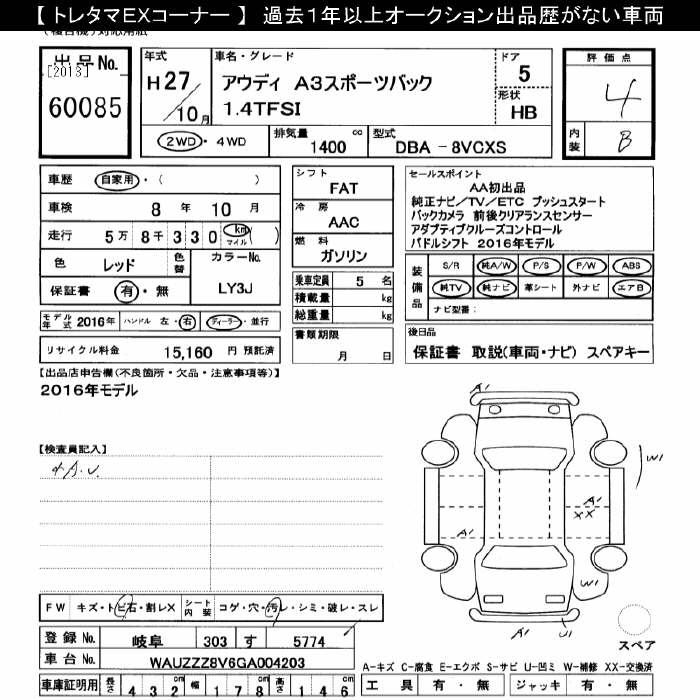 【 トレタマEXコーナー 】 過去1年以上オークション出品歴がない車両
（複合機）対応用紙
出品No.
[2013]
60085
年式
H27
/10月
車名・グレード
アウディ A3スポーツバック
1.4TFSI
ドア
5
形状
HB
評価点
4
内装
B
2WD・4WD
排気量
1400 cc
型式
DBA - 8VCXS
車歴 自家用・( )
車検 8 年 10 月
走行 5万 8千 3 3 0 km マイル ( )
色 レッド 色替
カラーNo.
LY3J
保証書 有・無
モデル年式 2016年 ハンドル 左・右 ディーラー・並行
リサイクル料金 15,160 円 預託済
シフト
FAT
冷房
AAC
燃料
ガソリン
乗車定員 5 名
積載量 kg
総重量 kg
書類期限
月 日
セールスポイント
AA初出品
純正ナビ／TV／ETC プッシュスタート
バックカメラ 前後クリアランスセンサー
アダプティブクルーズコントロール
パドルシフト 2016年モデル
装備品
S/R 純A/W P/S P/W ABS
純TV 純ナビ 革シート 外ナビ エアB
ナビ型番:
後日品
保証書 取説(車両・ナビ) スペアキー
【出品店申告欄(不良箇所・欠品・注意事項等)】
2016年モデル
【検査員記入】
A1
W1
A1
XX
A1
W1
A1
U1
スペア
FW キズ・トビ石・割レX シート内装 コゲ・穴・汚レ・シミ・破レ・スレ
登録No. 岐阜 303 す 5774
車台No. WAUZZZ8V6GA004203
車庫証明用 長さ 4 3 2 cm 幅 1 7 8 cm 高さ 1 4 6 cm
A-キズ C-腐食 E-エクボ S-サビ U-凹ミ W-補修 XX-交換済
工具 有・無 ジャッキ 有・無